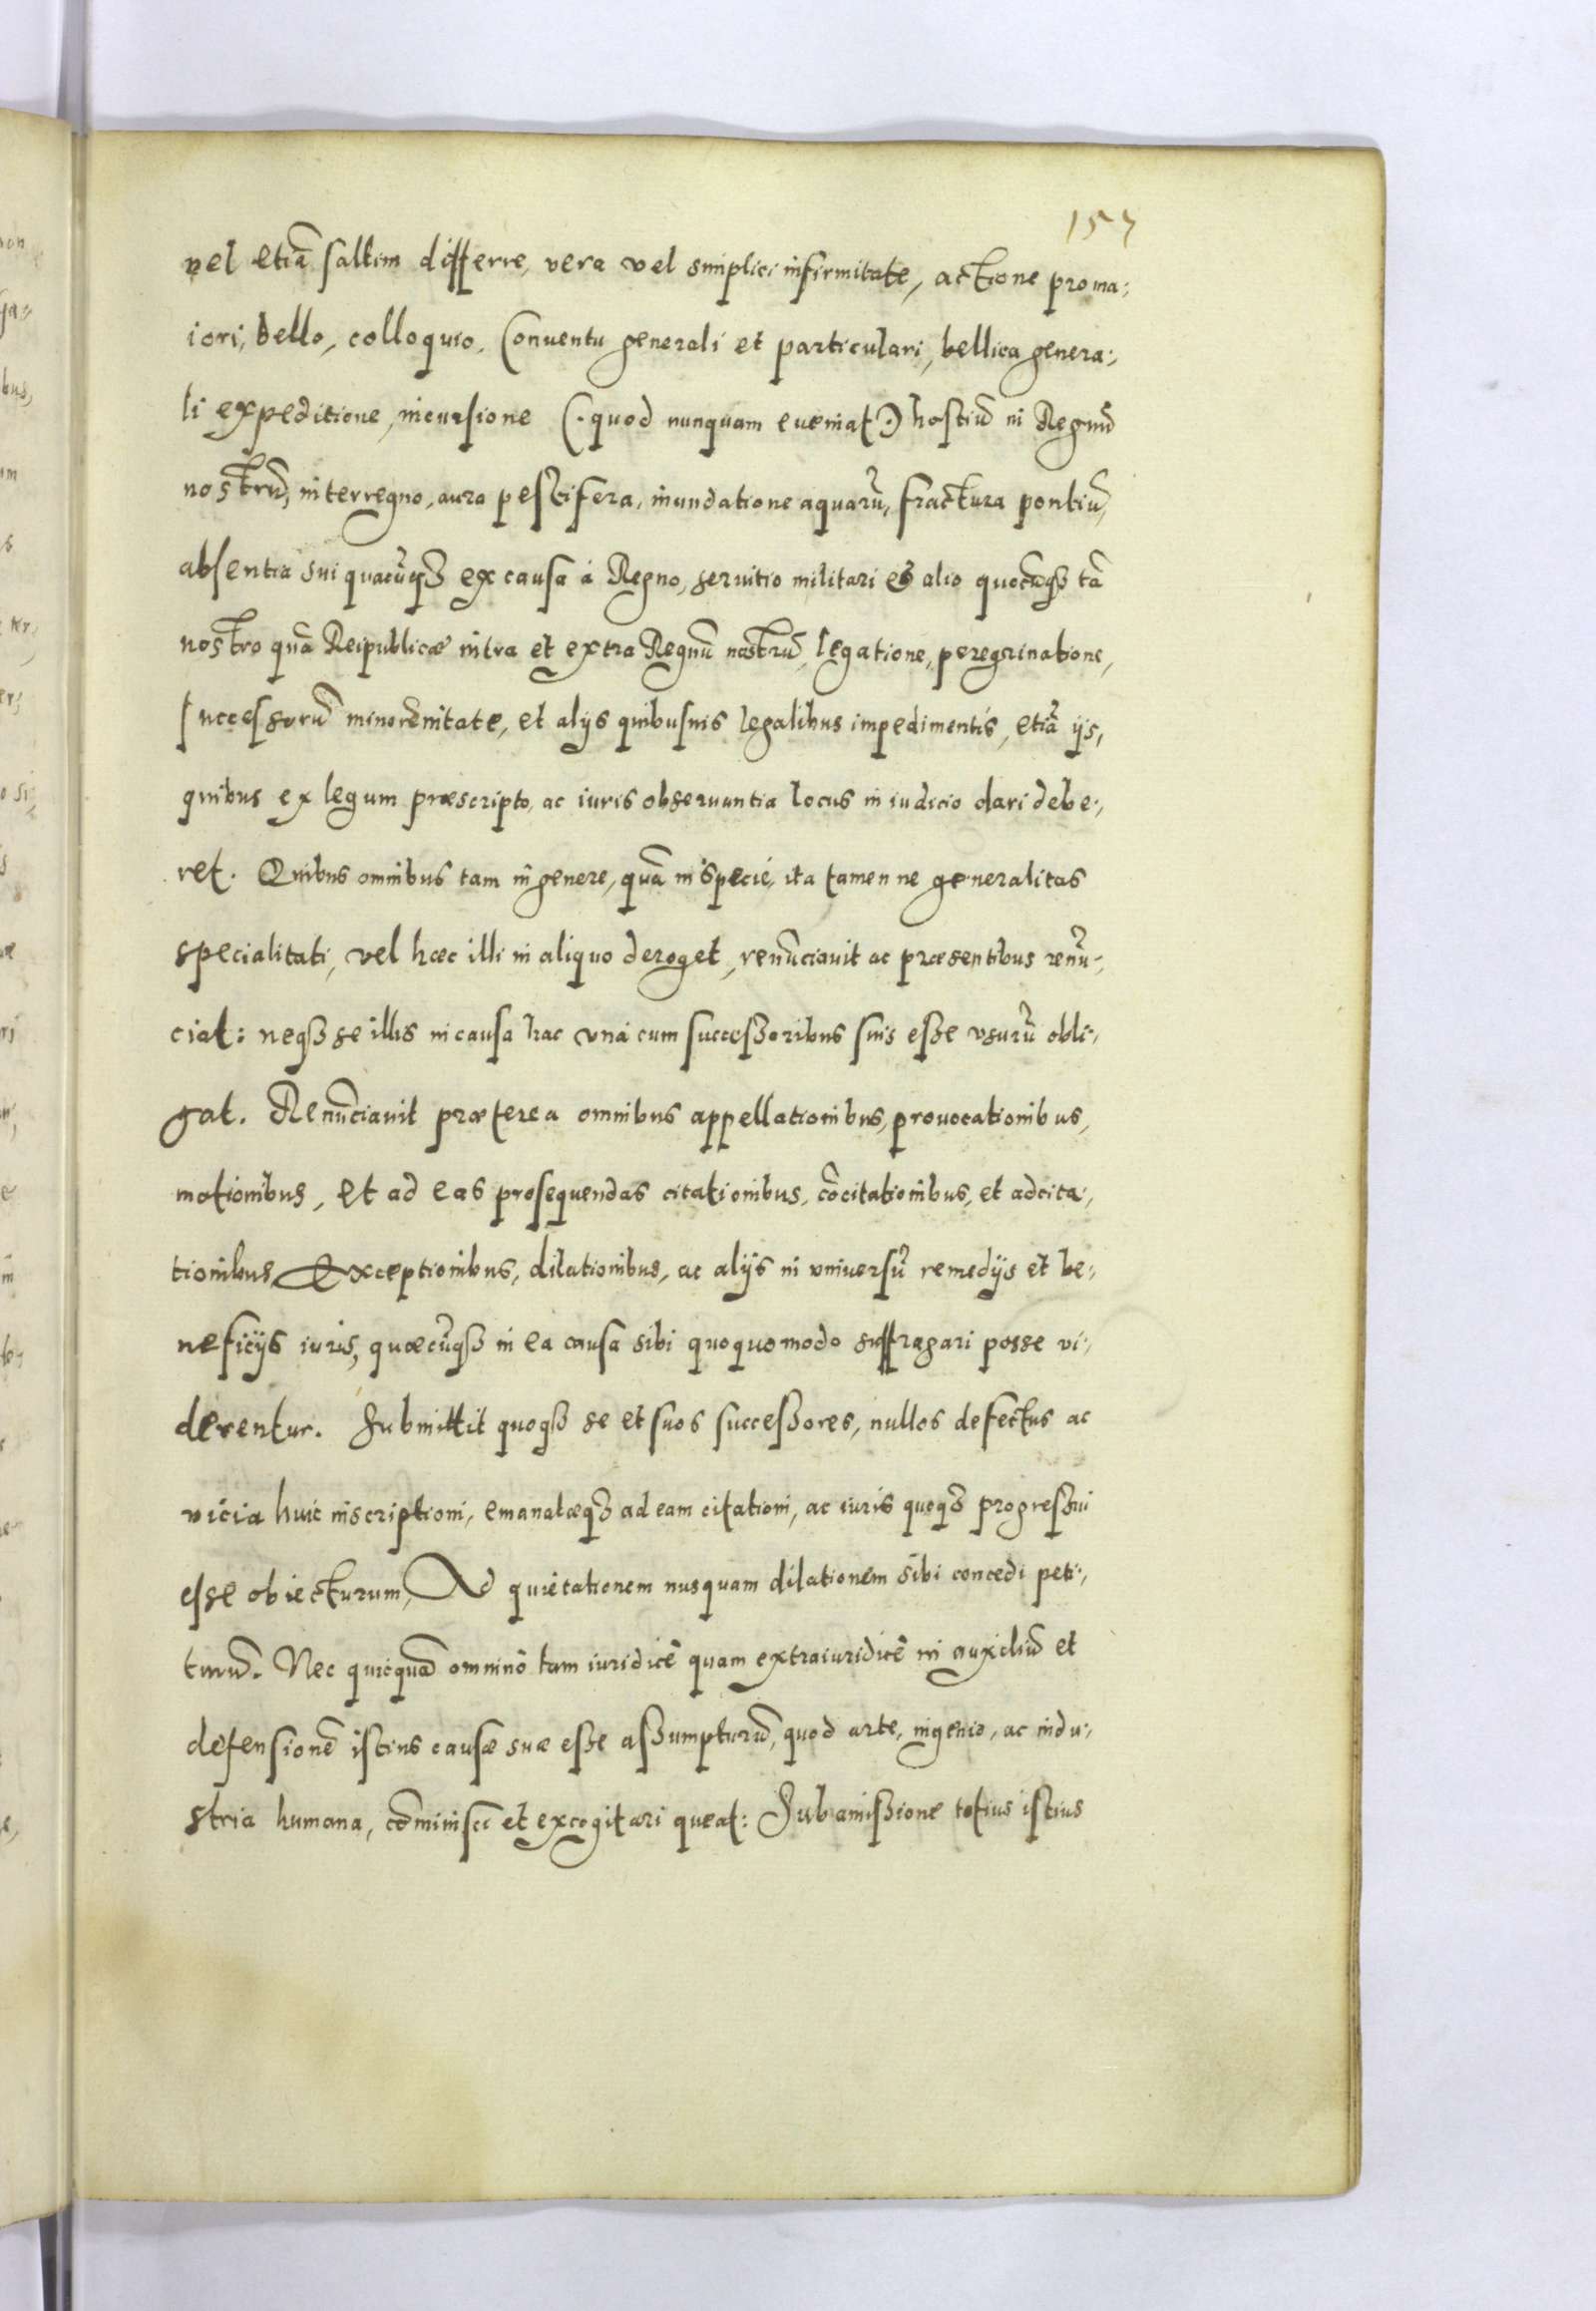 157
vel etiã saltim differre, vera vel simplici infirmitate, actione pro ma:
iori, bello, colloquio, Conuentu generali et particulari, bellica genera:
li expeditione, incursione (:quod nunquam eueniat:) hostiũ in Regnũ
nostrũ, interregno, aura pestifera, inundatione aquarũ, fractura pontiũ,
absentia sui quacũqß ex causa á Regno, seruitio militari et alio quocũqß tã
nostro quã Reipublicæ intra et extra Regnũ nostrũ, legatione, peregrinatione,
successorũ minorẽnitate, et alÿs quibusuis legalibus impedimentis, etiã ÿs,
quibus ex legum præscripto, ac iuris obseruantia locus in iudicio dari debe:
ret. Quibus omnibus tam in genere, quã in specie, ita tamen ne generalitas
specialitati, vel hæc illi in aliquo deroget, renũciauit ac præsentibus renũ:
ciat: neqß se illis in causa hac vná cum successoribus suis esse vsurũ obli:
gat. Renũciauit præterea omnibus appellationibus, prouocationibus,
motionibus, et ad eas prosequendas citationibus, cõcitationibus, et adcita:
tionibus, Exceptionibus, dilationibus, ac alÿs in vniuersũ remedÿs et be:
neficÿs iuris, quæcũqß in ea causa sibi quoquomodo suffragari posse vi:
derentur. Submittit quoqß se et suos successores, nullos defectus ac
vicia huic inscriptioni, emanatæqß ad eam citationi, ac iuris quoqß progressui
esse obiecturum, Ad quietationem nusquam dilationem sibi concedi peti:
turũ. Nec quicquã omninò tam iuridicè quam extraiuridicè in auxiliũ et
defensionẽ istius causæ suæ esse assumpturũ, quod arte, ingenio, ac indu:
stria humana, cõminisci et excogitari queat: Sub amissione totius istius